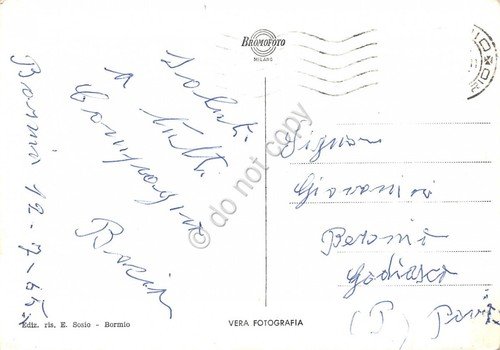 BROMOFOTO
MILANO
Bormio 12-7-65
Saluti
a tutti
Compagnia
Signor
Giovanini
Godiasco
(P) Pavia
Ediz. ris. E. Sosio - Bormio
VERA FOTOGRAFIA
© do not copy